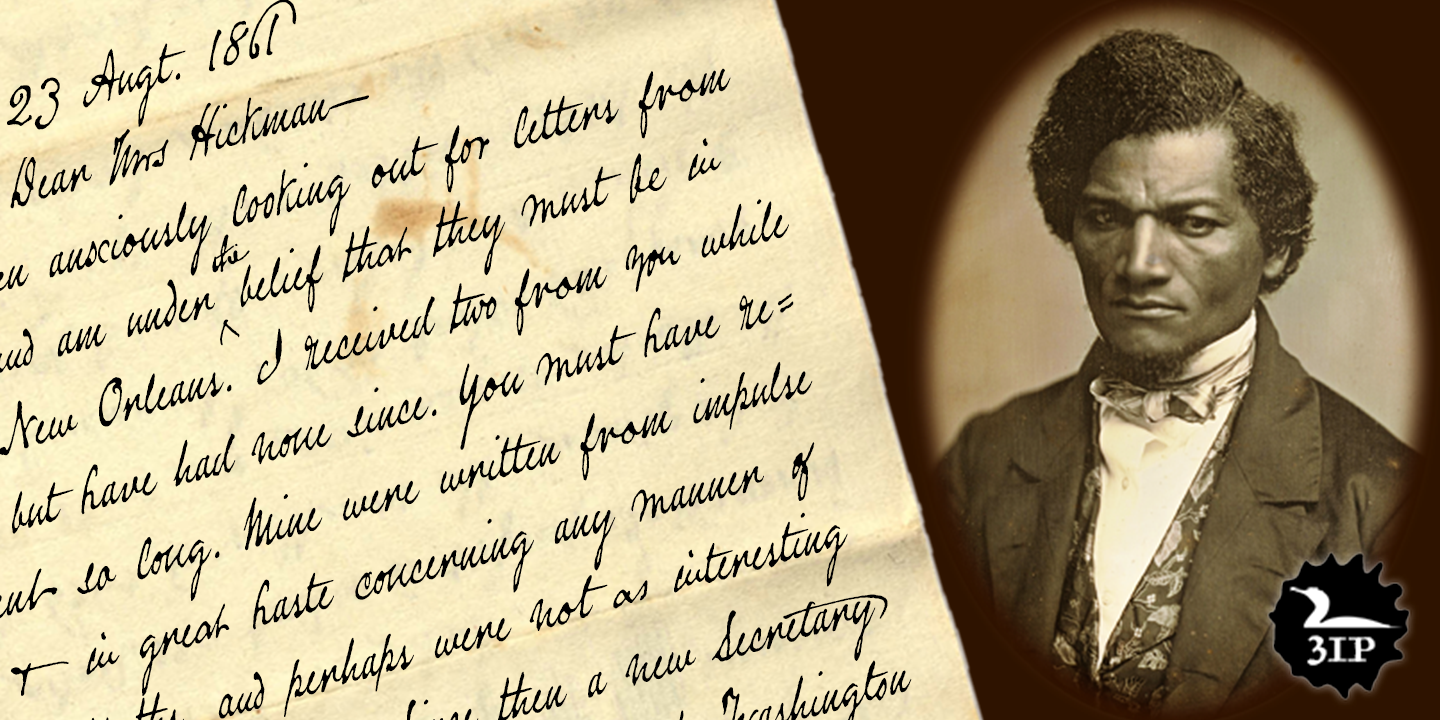 23 Augt. 1861
Dear Mrs Hickman—
en ansciously looking out for letters from
the
and am under ^ belief that they must be in
New Orleans. I received two from you while
but have had none since. You must have re=
ent so long. Mine were written from impulse
in great haste concerning any manner of
and perhaps were not as interesting
then a new Secretary
Washington
3IP